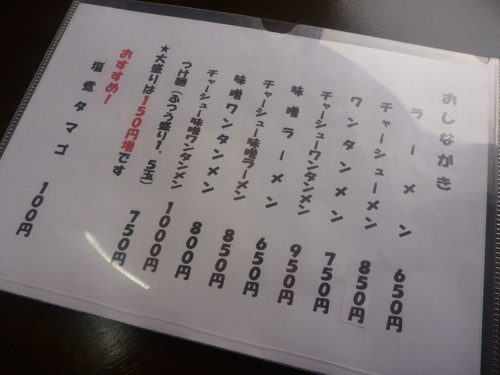 おしながき
ラーメン 650円
チャーシューメン 850円
ワンタンメン 750円
チャーシューワンタンメン 950円
味噌ラーメン 650円
チャーシュー味噌ラーメン 850円
味噌ワンタンメン 800円
チャーシュー味噌ワンタンメン 1000円
つけ麺(ふつう盛り1.5玉) 750円
★大盛りは150円増です
おすすめ!
塩煮タマゴ 100円